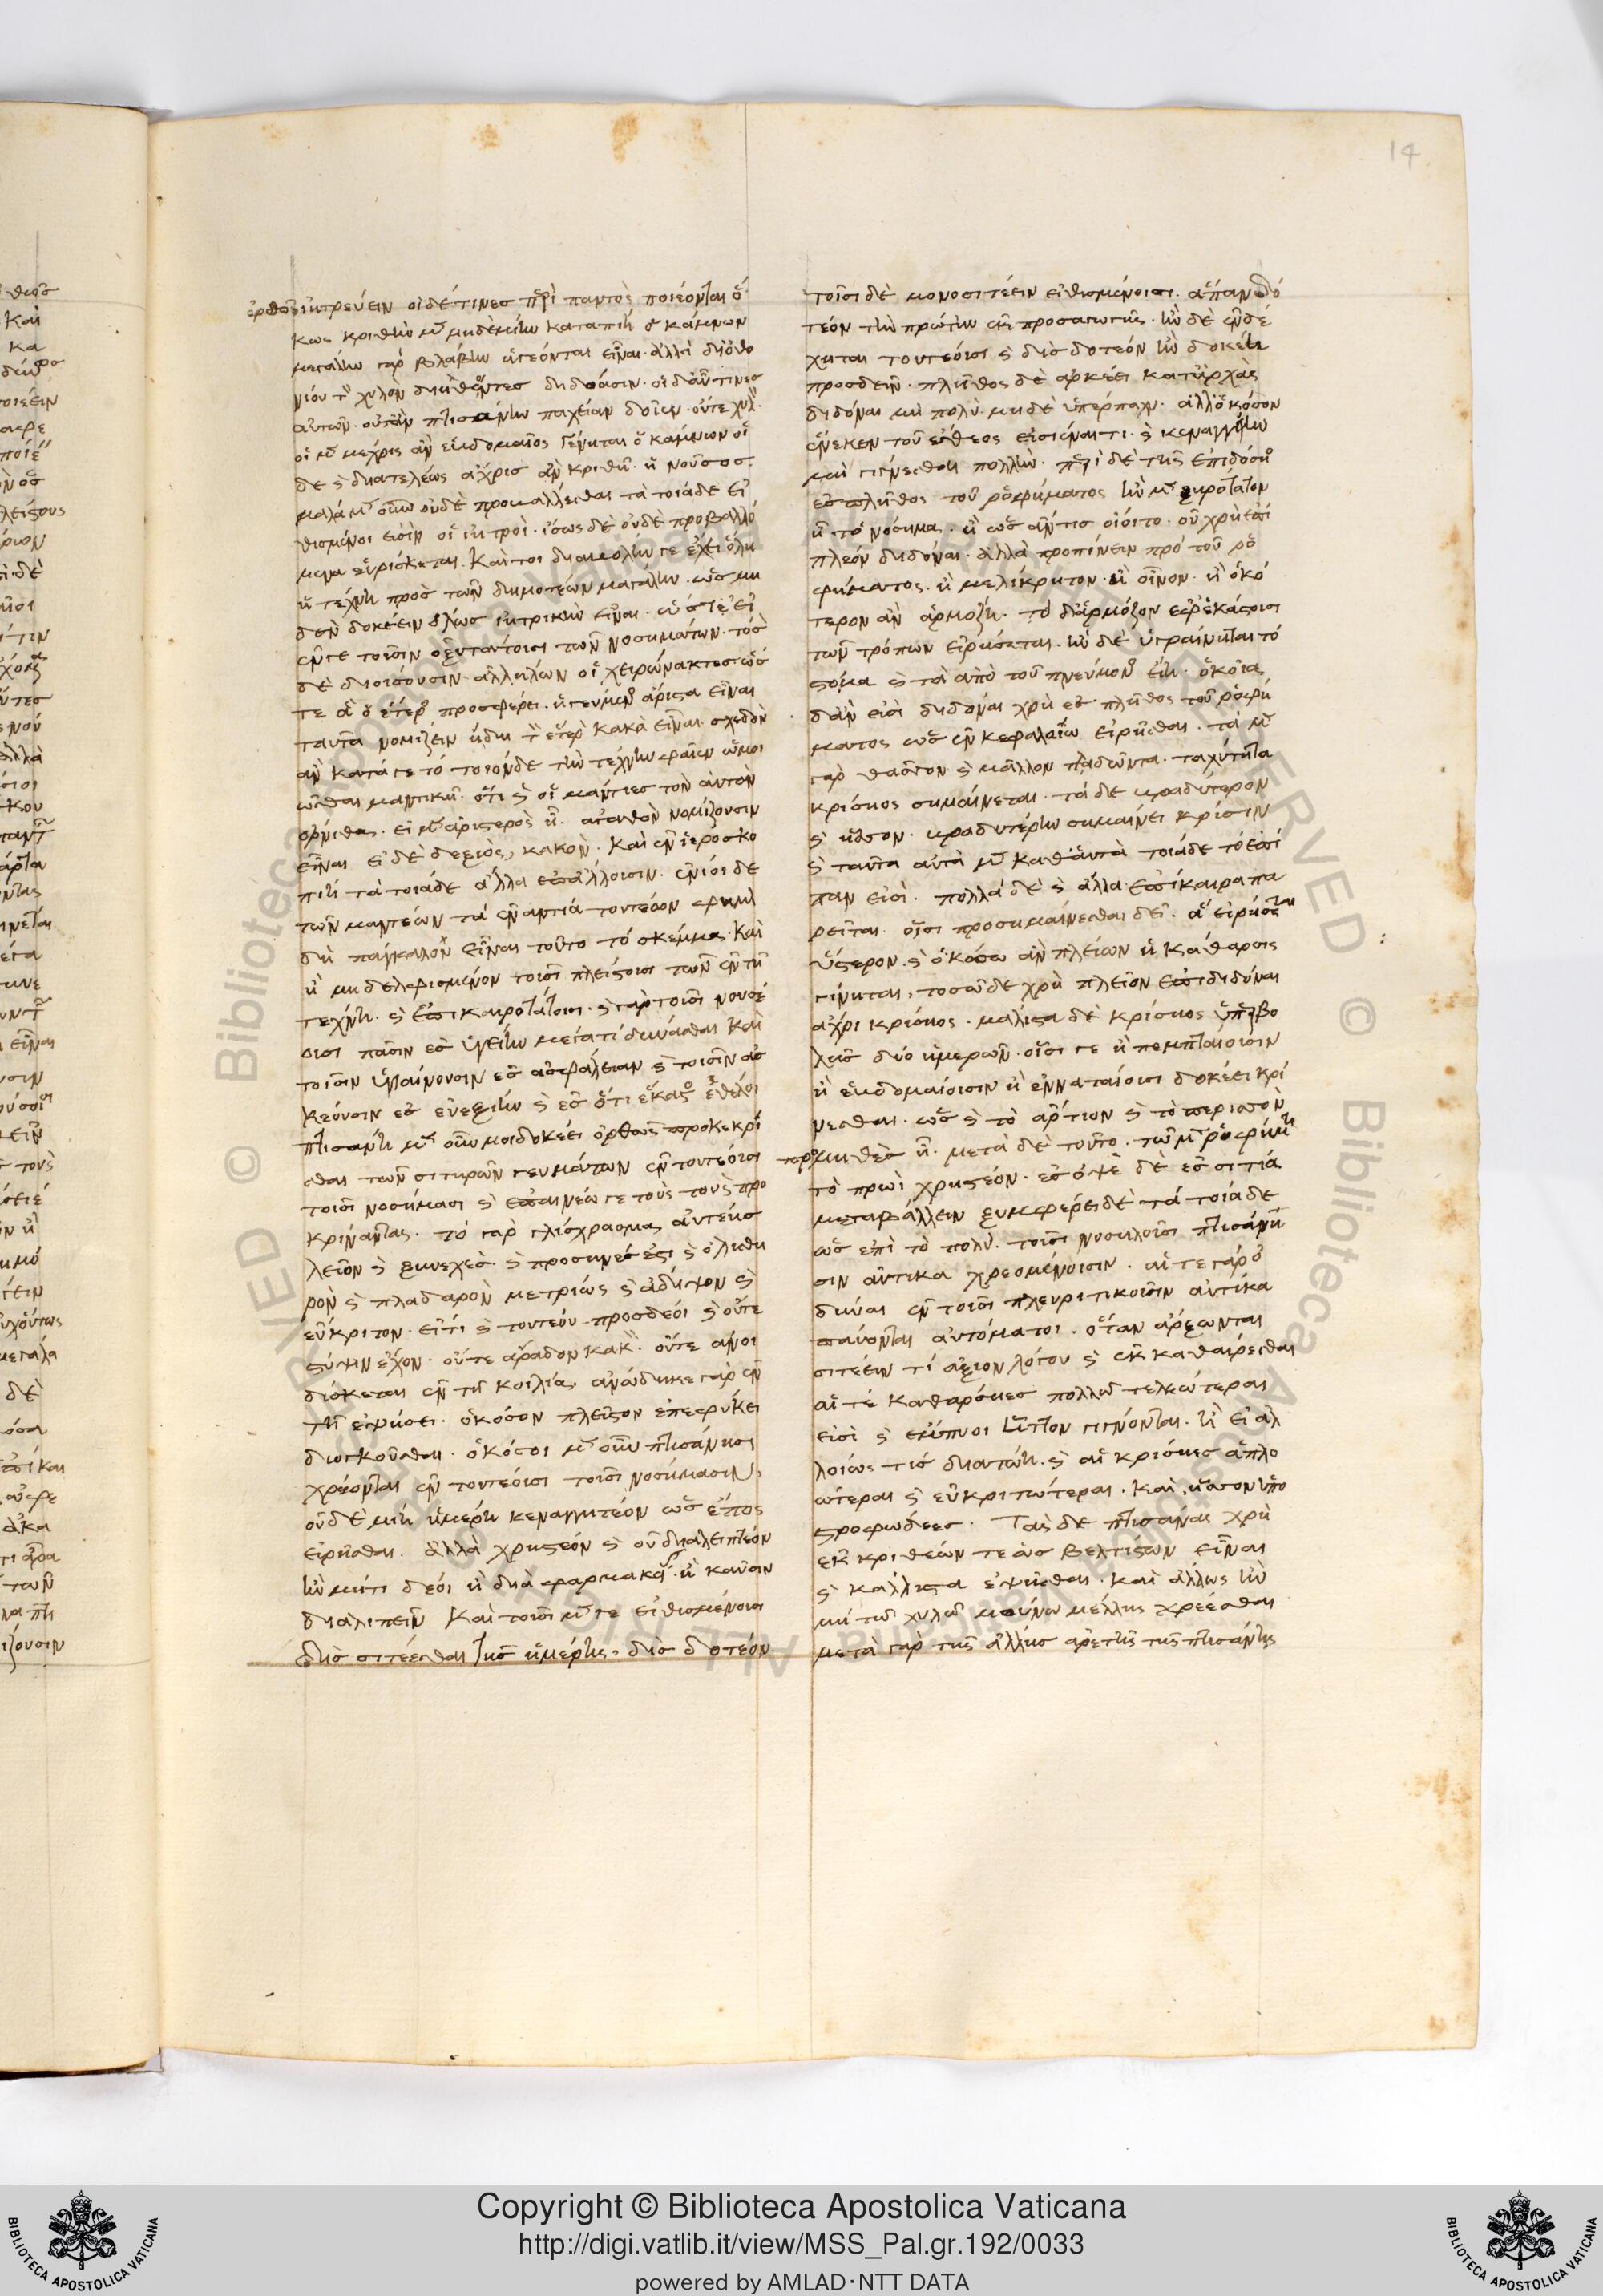 14
ὀρθῶς ἰητρεύειν οἱ δέ τινες περὶ παντὸς ποιέονται ὅ
κως κριθὴν μὲν μηδεμίην καταπίῃ ὁ κάμνων
μεγάλην γὰρ βλάβην ἡγεόνται εἶναι· ἀλλὰ διὀθο
νίου τὸν χυλὸν διηθέοντες διδόασιν· οἱ δ' αὖ τινες
αὐτῶν· οὔτ' ἂν πτισάνην παχεῖαν δοῖεν· οὔτε χυλὸν·
οἱ μὲν μέχρις ἂν ἑβδομαῖος γένηται ὁ κάμνων οἱ
δὲ καὶ διατελέως ἄχρις ἂν κριθῇ· ἡ νοῦσος·
μάλα μὲν οὖν οὐδὲ προβάλλεσθαι τὰ τοιάδε εἰ
θισμένοι εἰσὶν οἱ ἰητροί· ἴσως δὲ οὐδὲ προβαλλό
μενα εὑρίσκεται. Καίτοι διαβολήν γε ἔχει ὅλη
ἡ τέχνη πρὸς τῶν δημοτέων μεγάλην· ὡς μη
δὲν δοκέειν ὅλως ἰητρικὴν εἶναι· ὥστε εἰ
ἔν γε τοῖσιν ὀξυτάτοισι τῶν νοσημάτων· τόσον
δὲ διοίσουσιν ἀλλήλων οἱ χειρώνακτες ὥσ
τε ἃ ὁ ἕτερος προσφέρει· ἡγεύμενος ἄριστα εἶναι
ταῦτα νομίζειν ἤδη τὸν ἕτερον κακὰ εἶναι· σχεδὸν
ἂν κατά γε τὸ τοιόνδε τὴν τέχνην φαῖεν ὡμοι
ῶσθαι μαντικῇ· ὅτι καὶ οἱ μάντιες τὸν αὐτὸν
ὄρνιθα· εἰ μὲν ἀριστερὸς ᾖ· ἀγαθὸν νομίζουσιν
εἶναι εἰ δὲ δεξιὸς, κακόν· καὶ ἐν ἱεροσκο
πίῃ τὰ τοιάδε ἄλλα ἐπ' ἄλλοισιν· ἔνιοι δὲ
τῶν μαντέων τὰ ἐναντία τουτέων φημὶ
δὴ πάγκαλον εἶναι τοῦτο τὸ σκέμμα· καὶ
ἠδελφισμένον τοῖσι πλείστοισι τῶν ἐν τῇ
τέχνῃ· καὶ ἐπικαιροτάτοισι· καὶ γὰρ τοῖσι νοσέ
ουσι πᾶσιν ἐς ὑγείην μέγα τι δύναται καὶ
τοῖσιν ὑγιαίνουσιν ἐς ἀσφάλειαν καὶ τοῖσιν ἀσ
κέουσιν ἐς εὐεξίην καὶ ἐς ὅτι ἕκαστος ἐθέλοι
Πτισάνη μὲν οὖν μοι δοκέει ὀρθῶς προκεκρί
σθαι τῶν σιτηρῶν γευμάτων ἐν τουτέοισι
τοῖσι νοσήμασι καὶ ἐπαινέω γε τοὺς τοὺς προ
κρίναντας· τὸ γὰρ γλίσχρασμα αὐτέης
λεῖον καὶ ξυνεχὲς· καὶ προσηνές ἐστι καὶ ὀλισθη
ρὸν καὶ πλαδαρὸν μετρίως καὶ ἄδιψον καὶ
εὔκριτον· εἴ τι καὶ τουτέου προσδέοι καὶ οὔτε
στύψιν ἔχον· οὔτε ἄραδον κακὸν· οὔτε ἀνοι
δίσκεται ἐν τῇ κοιλίᾳ· ἀνῴδηκε γὰρ ἐν
τῇ ἑψήσει· ὁκόσον πλεῖστον ἐπεφύκει
διογκοῦσθαι· ὁκόσοι μὲν οὖν πτισάνῃσι
χρέονται ἐν τουτέοισι τοῖσι νοσήμασιν
οὐδὲ μίῃ ἡμέρῃ κεναγγητέον ὡς ἔπος
εἰρῆσθαι. ἀλλὰ χρηστέον καὶ οὐ διαλειπτέον
ἢν μή τι δέοι ἢ διὰ φαρμακείην ἢ καῦσιν
διαλιπεῖν Καὶ τοῖσι μέν γε εἰθισμένοισι
δὶς σιτέεσθαι τῆς ἡμέρης· δὶς δοτέον
τοῖσι δὲ μονοσιτέειν εἰθισμένοισι· ἅπαν δο
τέον τὴν πρώτην ἐκ προσαγωγῆς· ἢν δὲ ἐνδέ
χηται τουτέοισι καὶ δὶς δοτέον ἢν δοκέῃ
προσδεῖν· πλῆθος δὲ ἀρκέει κατ' ἀρχὰς
διδόναι μὴ πολὺ· μηδὲ ὑπέρπαχυ· ἀλλ' ὁκόσον
ἕνεκεν τοῦ ἔθεος εἰσιέναι τι· καὶ κεναγγείην
μὴ γίνεσθαι πολλὴν· περὶ δὲ τῆς ἐπιδόσιος
ἐς πλῆθος τοῦ ῥοφήματος ἢν μὲν ξηρότατον
ᾖ τὸ νόσημα· ἢ ὡς ἄν τις οἴοιτο· οὐ χρὴ ἐπὶ
πλέον διδόναι· ἀλλὰ προπίνειν πρὸ τοῦ ῥο
φήματος· ἢ μελίκρητον· ἢ οἶνον· ἢ ὁκό
τερον ἂν ἁρμόζῃ· τὸ δ' ἁρμόζον ἐφ' ἑκάστοισι
τῶν τρόπων εἰρήσεται· ἢν δὲ ὑγραίνηται τὸ
στόμα καὶ τὰ ἀπὸ τοῦ πνεύμονος ἔῃ· ὁκοῖα
δ' ἂν εἰσὶ διδόναι χρὴ ἐς πλῆθος τοῦ ῥοφή
ματος ὡς ἐν κεφαλαίῳ εἰρῆσθαι· τὰ μὲν
γὰρ θᾶσσον καὶ μᾶλλον πλαδῶντα· ταχύτητα
κρίσιος σημαίνεται· τὰ δὲ βραδύτερον
καὶ ἧσσον· βραδυτέρην σημαίνει κρίσιν
καὶ ταῦτα αὐτὰ μὲν καθ' ἑαυτὰ τοιάδε τὸ ἐπί
παν εἰσὶ· πολλὰ δὲ καὶ ἄλλα ἐπίκαιρα πα
ρεῖται· οἷσι προσημαίνεσθαι δεῖ· ἃ εἰρήσεται
ὕστερον· καὶ ὁκόσῳ ἂν πλείων ἡ κάθαρσις
γίνηται, τοσῷδε χρὴ πλεῖον ἐπιδιδόναι
ἄχρι κρίσιος· μάλιστα δὲ κρίσιος ὑπερβο
λῆς δύο ἡμερῶν· οἷσί γε ἢ πεμπταίοισιν
ἢ ἑβδομαίοισιν ἢ ἐννεαταίοισι δοκέει κρί
νεσθαι· ὡς καὶ τὸ ἄρτιον καὶ τὸ περισσὸν
προμηθὲς ᾖ· μετὰ δὲ τοῦτο· τῷ μὲν ῥοφήματι
τὸ πρωῒ χρηστέον· ἐς ὀψὲ δὲ ἐς σιτία
μεταβάλλειν ξυμφέρει δὲ τὰ τοιάδε
ὡς ἐπὶ τὸ πολύ· τοῖσι νοσηλοῖσι πτισάνῃ
σιν αὐτίκα χρεομένοισιν· αἵ τε γὰρ ὀ
δύναι ἐν τοῖσι πλευριτικοῖσιν αὐτίκα
παύονται αὐτόματοι· ὅταν ἄρξωνται
σιτέειν τί ἄξιον λόγου καὶ ἐκκαθαίρεσθαι
αἵ τε καθάρσιες πολλῷ τελεώτεραι
εἰσὶ καὶ ἔμπυοι ἧττον γίνονται· ἢ εἰ ἀλ
λοίως τις διαιτῴη· καὶ αἱ κρίσιες ἁπλο
ώτεραι καὶ εὐκριτώτεραι· καὶ ἧσσον ὑπο
στροφώδεες· Τὰς δὲ πτισάνας χρὴ
ἐκ κριθέων τε ὡς βελτίστων εἶναι
καὶ κάλλιστα ἑψῆσθαι· καὶ ἄλλως ἢν
μὴ τῷ χυλῷ μούνῳ μέλλῃς χρέεσθαι
μετὰ γὰρ τῆς ἄλλης ἀρετῆς τῆς πτισάνης
Copyright © Biblioteca Apostolica Vaticana
http://digi.vatlib.it/view/MSS_Pal.gr.192/0033
powered by AMLAD·NTT DATA